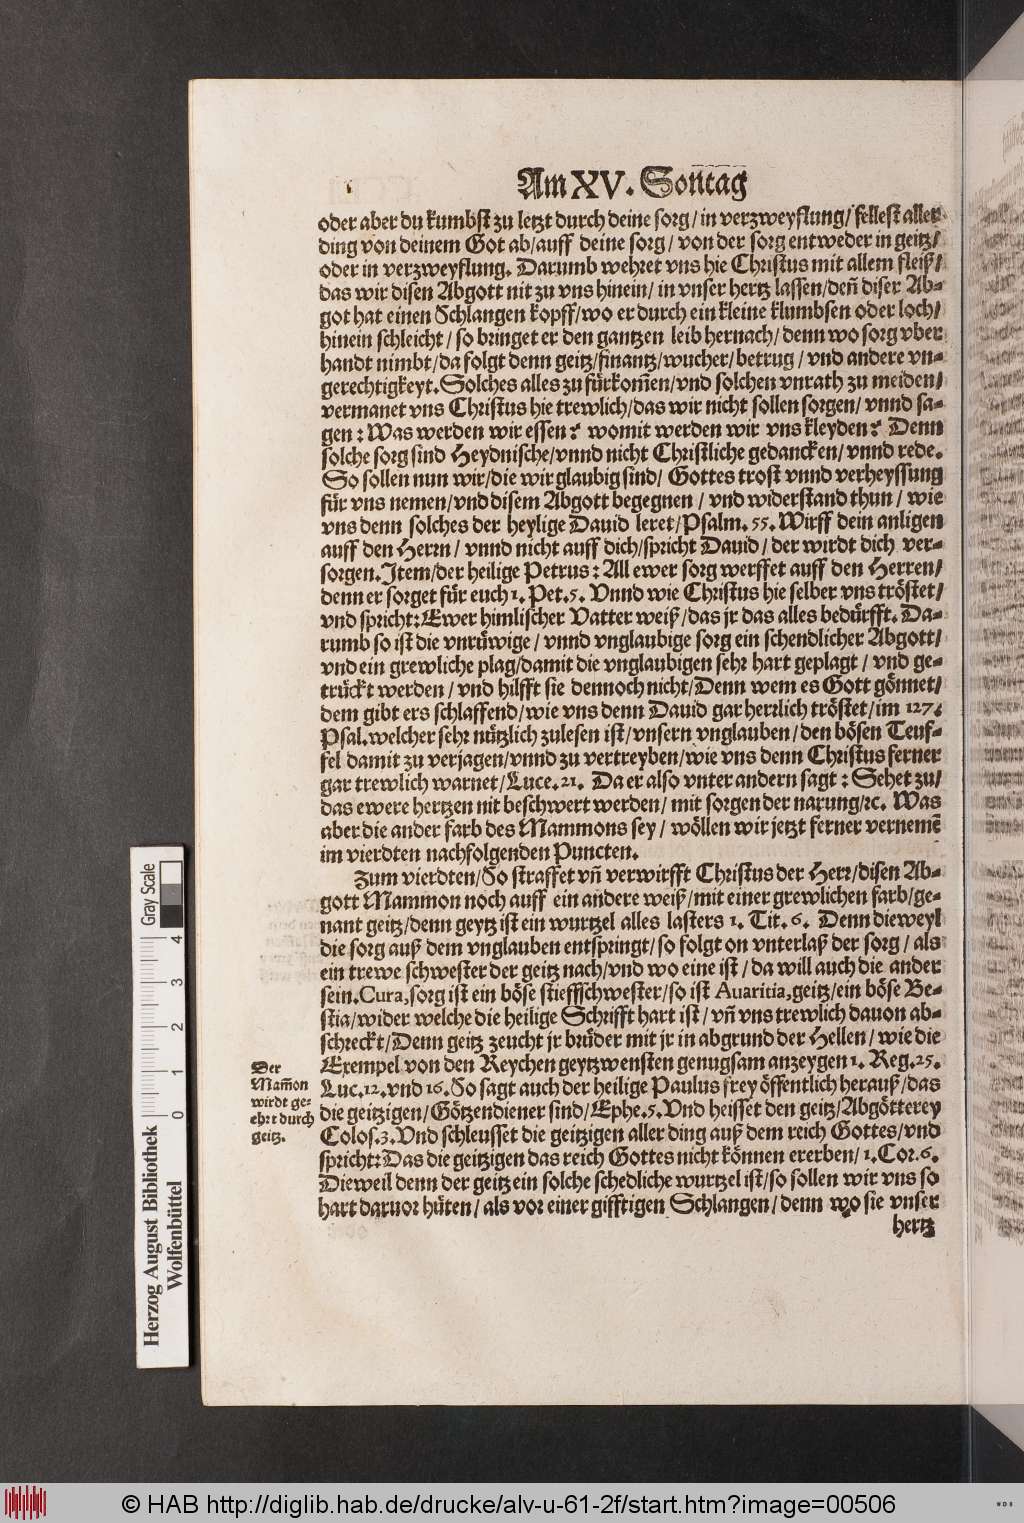 Am XV. Son̄tag
oder aber du kumbst zu letzt durch deine sorg / in verzweyflung / fellest aller
ding von deinem Got ab / auff deine sorg / von der sorg entweder in geitz /
oder in verzweyflung. Darumb wehret vns hie Christus mit allem fleiß /
das wir disen Abgott nit zu vns hinein / in vnser hertz lassen / den̄ diser Ab=
got hat einen Schlangen kopff / wo er durch ein kleine klumbsen oder loch /
hinein schleicht / so bringet er den gantzen leib hernach / denn wo sorg vber
handt nimbt / da folgt denn geitz / finantz / wucher / betrug / vnd andere vn=
gerechtigkeyt. Solches alles zu fürkom̄en / vnd solchen vnrath zu meiden /
vermanet vns Christus hie trewlich / das wir nicht sollen sorgen / vnnd sa=
gen : Was werden wir essen ? womit werden wir vns kleyden ? Denn
solche sorg sind Heydnische / vnnd nicht Christliche gedancken / vnnd rede.
So sollen nun wir / die wir glaubig sind / Gottes trost vnnd verheyssung
für vns nemen / vnd disem Abgott begegnen / vnd widerstand thun / wie
vns denn solches der heylige Dauid leret / Psalm. 55. Wirff dein anligen
auff den Herrn / vnnd nicht auff dich / spricht Dauid / der wirdt dich ver=
sorgen. Item / der heilige Petrus : All ewer sorg werffet auff den Herren /
denn er sorget für euch 1. Pet. 5. Vnnd wie Christus hie selber vns tröstet /
vnd spricht : Ewer himlischer Vatter weiß / das jr das alles bedürfft. Da=
rumb so ist die vnrüwige / vnnd vnglaubige sorg ein schendlicher Abgott /
vnd ein grewliche plag / damit die vnglaubigen sehr hart geplagt / vnd ge=
trückt werden / vnd hilfft sie dennoch nicht / Denn wem es Gott gönnet /
dem gibt ers schlaffend / wie vns denn Dauid gar herrlich tröstet / im 127.
Psal. welcher sehr nützlich zulesen ist / vnsern vnglauben / den bösen Teuf=
fel damit zu verjagen / vnnd zu vertreyben / wie vns denn Christus ferner
gar trewlich warnet / Luce. 21. Da er also vnter andern sagt : Sehet zu /
das ewere hertzen nit beschwert werden / mit sorgen der narung / ꝛc. Was
aber die ander farb des Mammons sey / wöllen wir jetzt ferner vernemē
im vierdten nachfolgenden Puncten.
Zum vierdten / So straffet vn̄ verwirfft Christus der Herr / disen Ab=
gott Mammon noch auff ein andere weiß / mit einer grewlichen farb / ge=
nant geitz / denn geytz ist ein wurtzel alles lasters 1. Tit. 6. Denn dieweyl
die sorg auß dem vnglauben entspringt / so folgt on vnterlaß der sorg / als
ein trewe schwester der geitz nach / vnd wo eine ist / da will auch die ander
sein. Cura, sorg ist ein böse stieffschwester / so ist Auaritia, geitz / ein böse Be=
stia / wider welche die heilige Schrifft hart ist / vn̄ vns trewlich dauon ab=
schreckt / Denn geitz zeucht jr brüder mit jr in abgrund der Hellen / wie die
Exempel von den Reychen geytzwensten genugsam anzeygen 1. Reg. 25.
Luc. 12. vnd 16. So sagt auch der heilige Paulus frey öffentlich herauß / das
die geitzigen / Götzendiener sind / Ephe. 5. Vnd heisset den geitz / Abgötterey
Colos. 3. Vnd schleusset die geitzigen aller ding auß dem reich Gottes / vnd
spricht : Das die geitzigen das reich Gottes nicht können ererben / 1. Cor. 6.
Dieweil denn der geitz ein solche schedliche wurtzel ist / so sollen wir vns so
hart daruor hüten / als vor einer gifftigen Schlangen / denn wo sie vnser
hertz
Der
Mam̄on
wirdt ge=
ehrt durch
geitz.
Herzog August Bibliothek
Wolfenbüttel
Gray Scale
0 1 2 3 4
© HAB http://diglib.hab.de/drucke/alv-u-61-2f/start.htm?image=00506